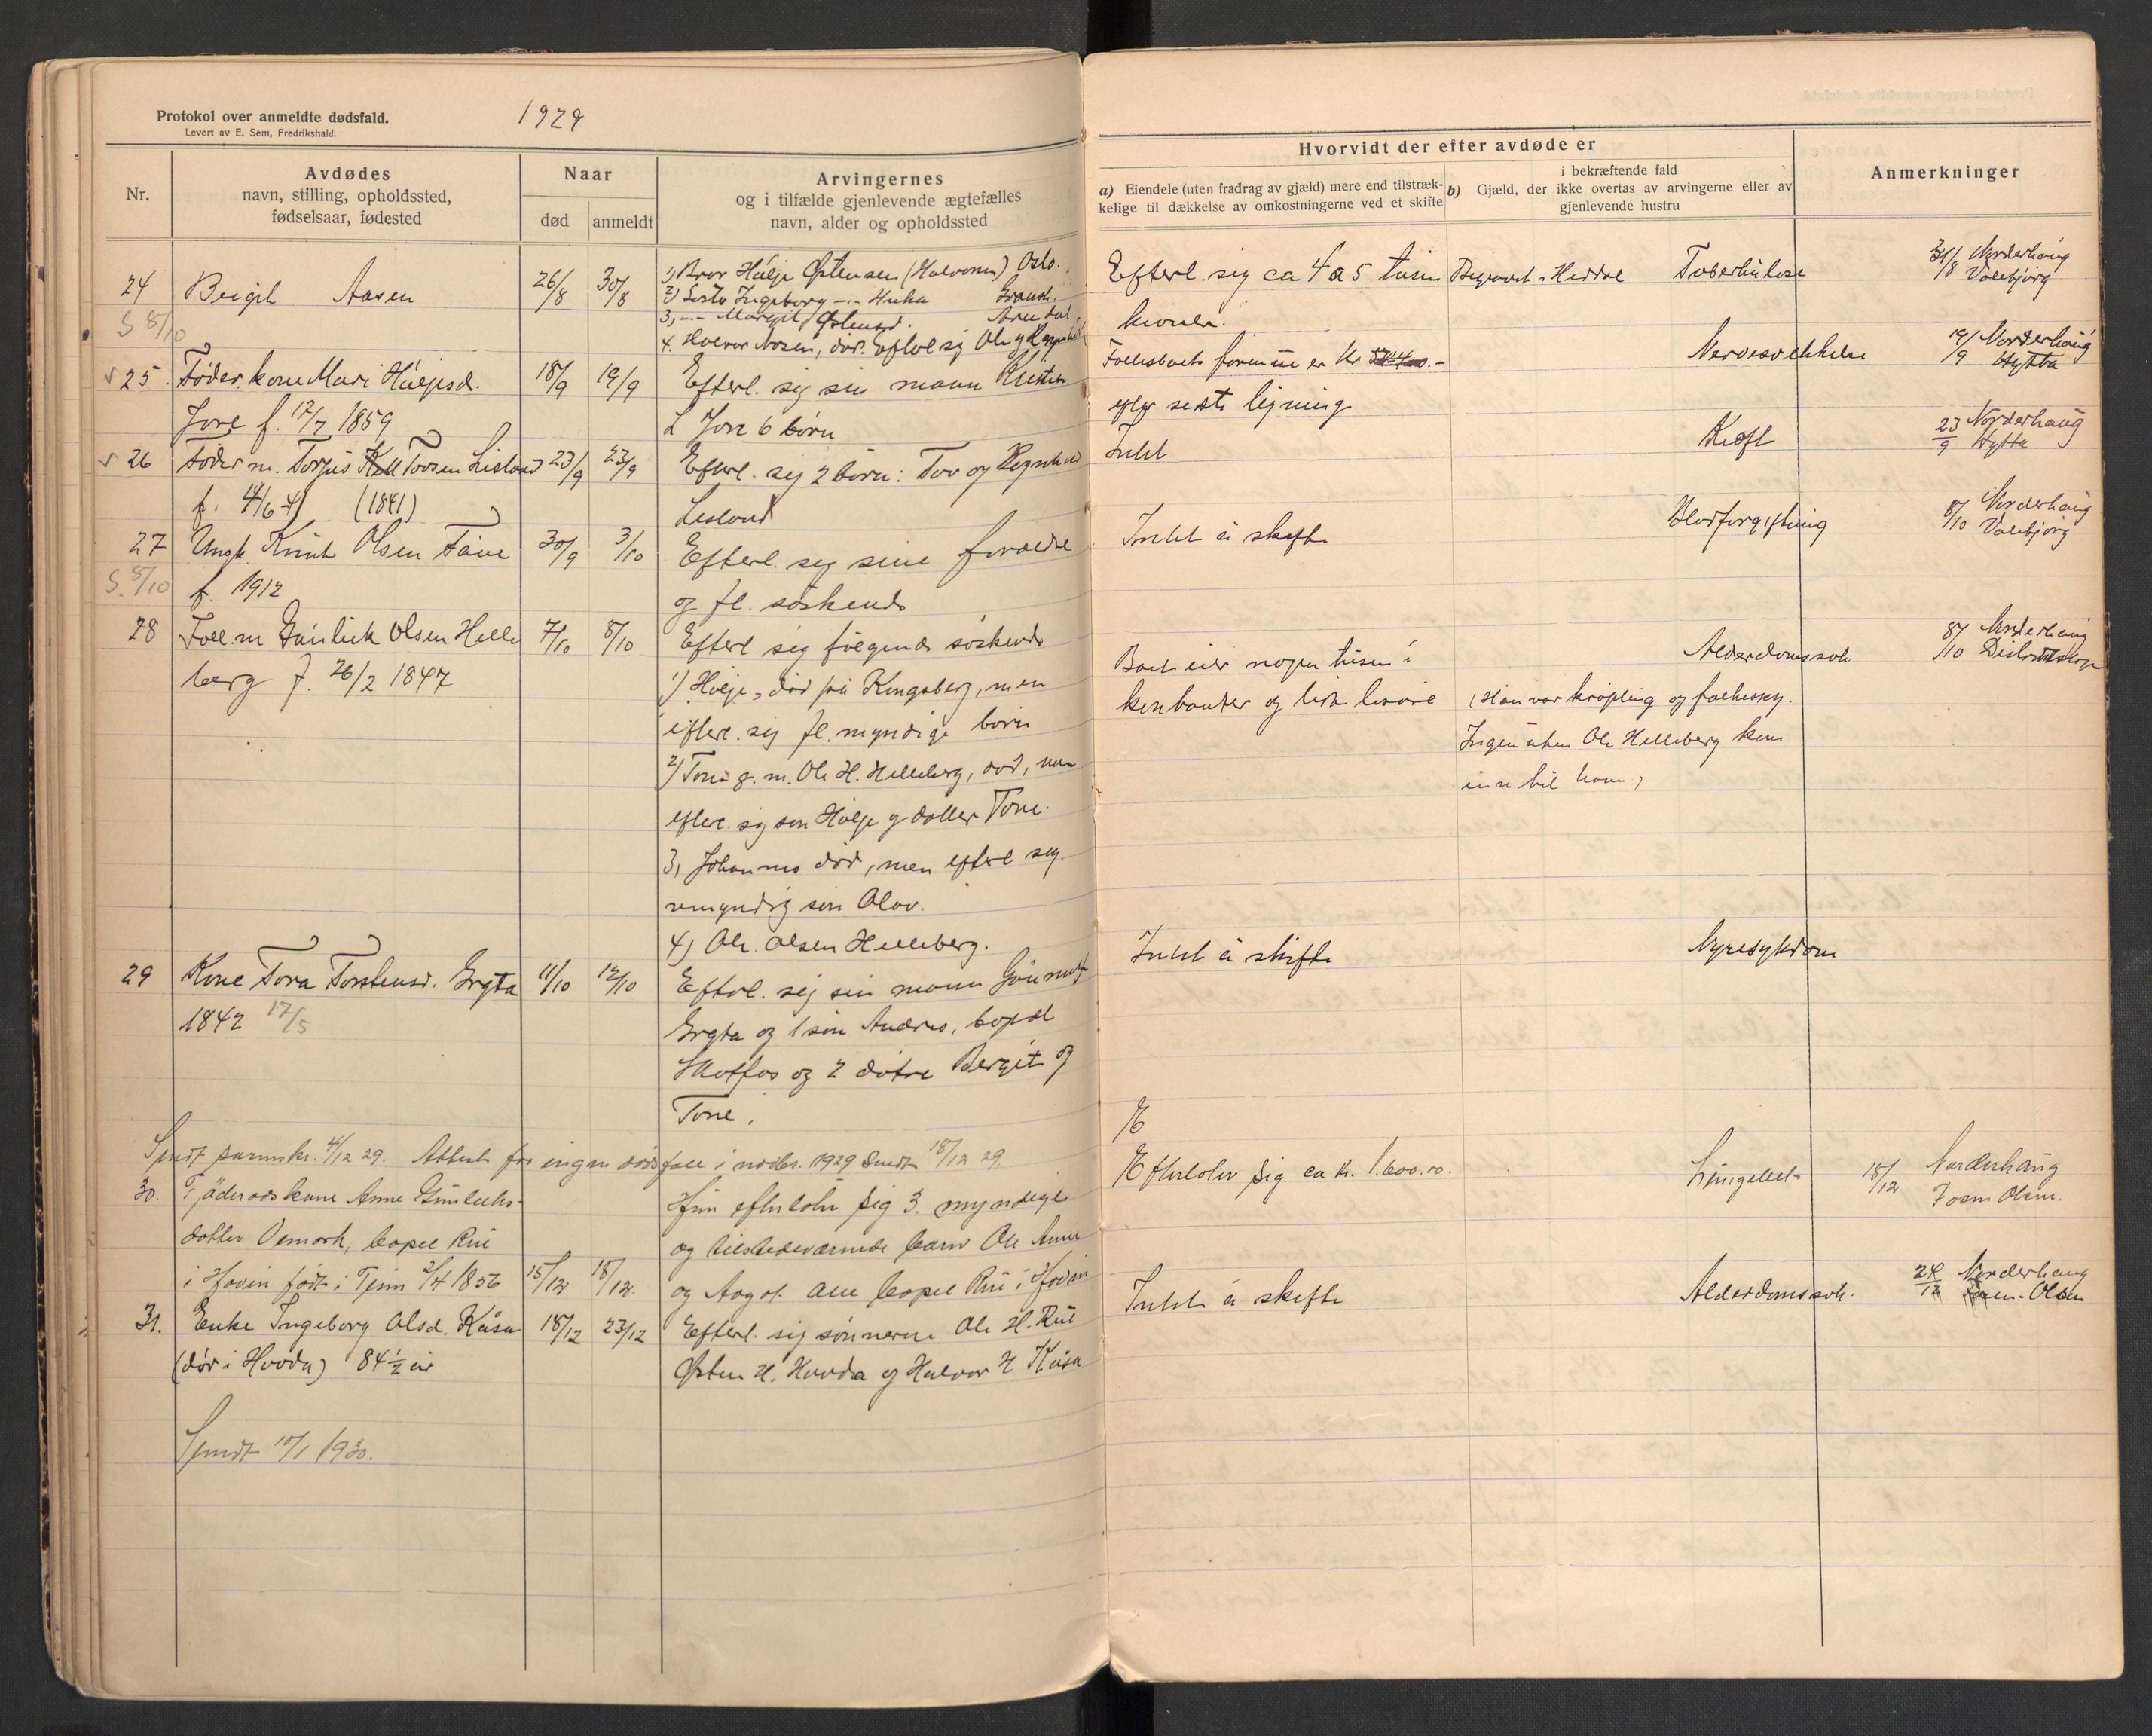 Protokol over anmeldte dødsfald.
Levert av E. Sem, Fredrikshald.
1929
Nr.
Avdødes
navn, stilling, opholdssted,
fødselsaar, fødested
Naar
død
anmeldt
Arvingernes
og i tilfælde gjenlevende ægtefælles
navn, alder og opholdssted
Hvorvidt der efter avdøde er
a) Eiendele (uten fradrag av gjæld) mere end tilstræk-
kelige til dækkelse av omkostningerne ved et skifte
i bekræftende fald
b) Gjæld, der ikke overtas av arvingerne eller av
gjenlevende hustru
Anmerkninger
24 Bergit Aasen 26/8 30/8
S 8/10
1) Bror Hølje Østensen (Halvorsen) Oslo.
2) Søster Ingeborg
3, Margit Østensd. Arendal.
4. Halvor Aasen, død. efterl sig Ole og
Efterl. sig ca 4 a 5 tusen
kroner.
Begravet i Heddal Tuberkulose 31/8 Norderhaug
Valebjørg
25. Føder. kone Mari Høljesd. 18/9 19/9 Efterl. sig sin mann Kristen
Jore f. 17/7 1859
L Jore 6 børn
Fællesboets formue er kr
efter siste ligning
Nervesvekkelse 19/9 Norderhaug
Hytta
26 Føder m. Torjus Torsen Lisland 23/9 23/9 Efterl. sig 2 børn: Tov og Ragnhild
f. 4/6 41 (1841)
Lisland
Intet
Kreft 23/9 Norderhaug
Hytta
27 Ungk. Knut Olsen Fåne 30/9 3/10 Efterl. sig sine foreldre
S. 8/10 f. 1912
og fl. søskende
Intet å skifte
Blodforgiftning 8/10 Norderhaug
Valebjørg
28 Foll.m Gunleik Olsen Helle 7/10 8/10 Efterl sig følgende søskende
berg f. 26/2 1847
1) Hølje, død på Kongsberg, men
efterl. sig fl. myndige børn
2) Tone g. m. Ole H. Helleberg, død, men
efterl. sig søn Hølje og datter Tone.
3, Johannes død, men efterl sig
umyndig søn Olav.
4) Ole Olsen Helleberg.
Boet eier nogen tusen i
kontanter og litt løsøre
(Han var krøpling og folkesky.
Ingen uten Ole Helleberg kom
inn til ham)
Alderdomssvk. 8/10 Norderhaug
29 Kone Tora Torstensd. Grgta 11/10 12/10 Efterl. sig sin mann Gunnulf
1842 17/5
Grgta og 1 søn Andres, bopæl
Skotfos og 2 døtre Bergit og
Tone.
Intet å skifte
Nyresykdom
Sendt 4/12 29. Attest for ingen dødsfall i novbr. 1929 Sendt 18/12 29.
E
30. Føderådskone Anne Gunleiks-
datter Vemork, bopel Rui
i Hovin født i Tinn 2/4 1856 15/12 18/12
Hun efterlater sig 3 myndige
og tilstedeværende barn Ole Anne
og Aagot alle bopel Rui i Hovin
Efterlater sig ca kr. 1.600.00.
Lungebet. 18/12 Norderhaug
Joen Olsen.
31. Enke Ingeborg Olsd. Kåsa 18/12 23/12 Efterl. sig sønnerne Ole H. Rui
(død i Hovda) 84½ år
Østen H. Hovda og Halvor H Kåsa
Intet å skifte
Alderdomssvk. 24/12 Norderhaug
Joen Olsen
Sendt 10/1 1930.